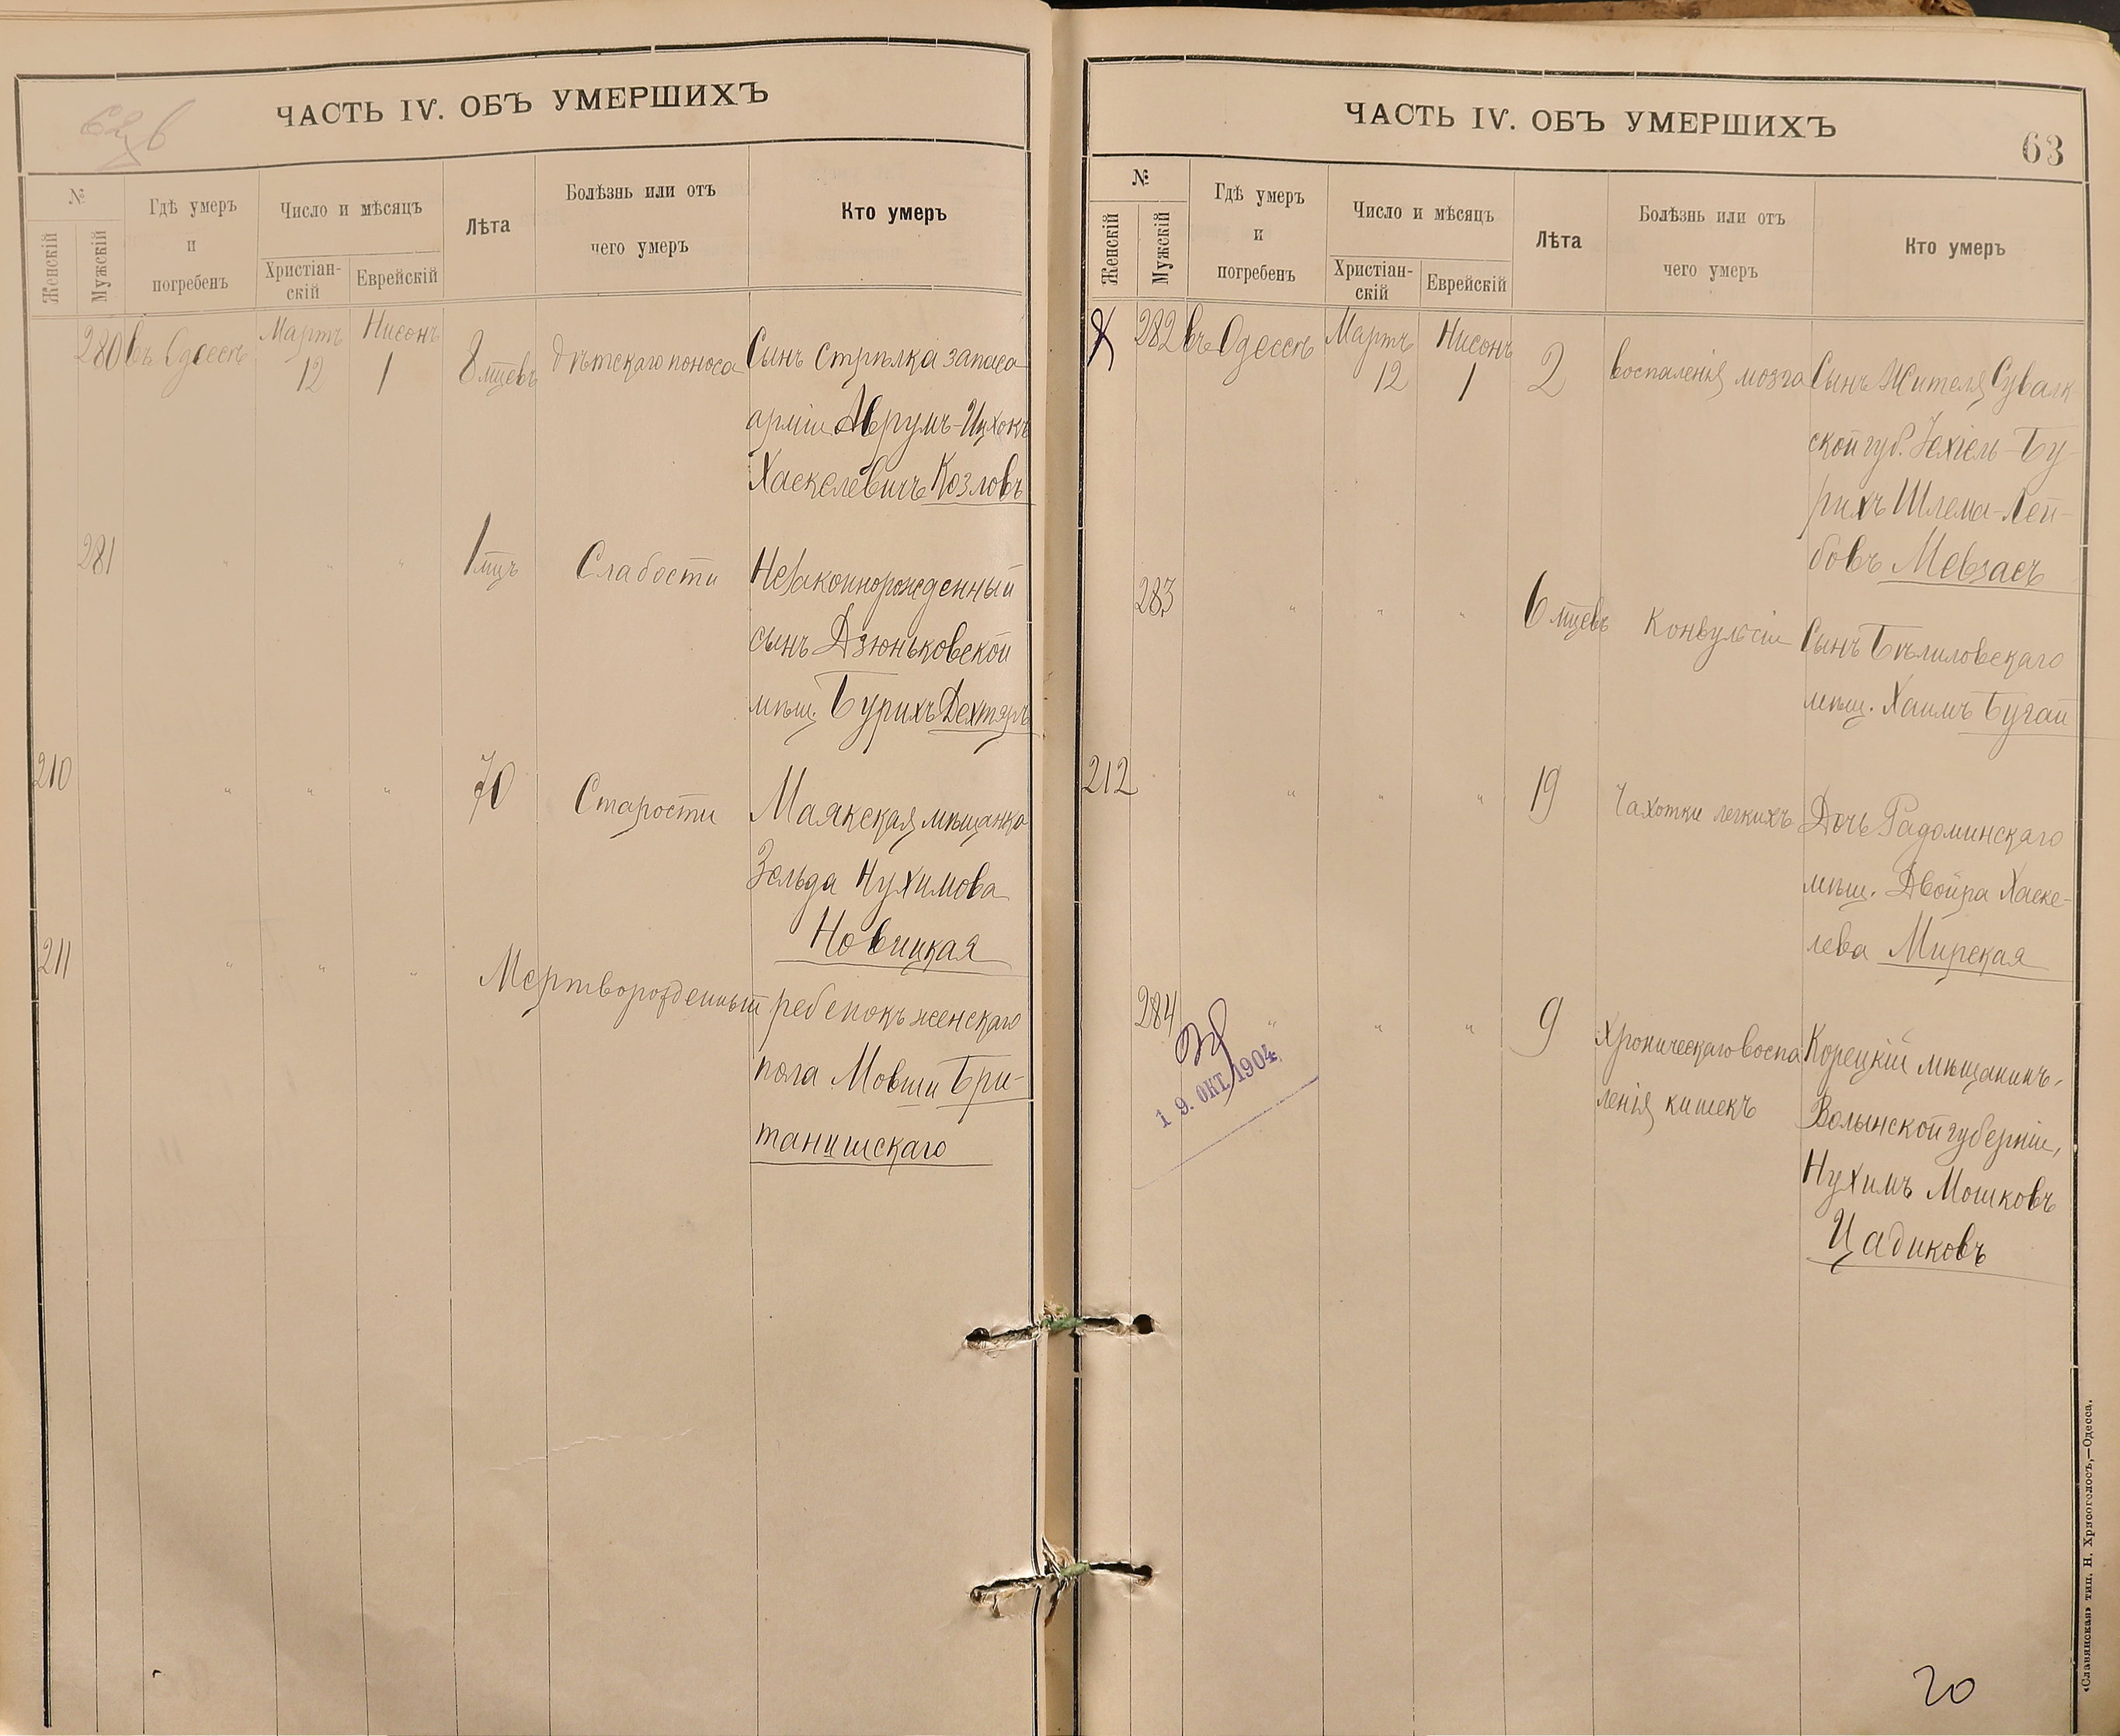 ЧАСТЬ IV. ОБЪ УМЕРШИХЪ
№
Женскій
Мужскій
Гдѣ умеръ
и
погребенъ
Число и мѣсяцъ
Христіан-
скій
Еврейскій
Лѣта
Болѣзнь или отъ
чего умеръ
Кто умеръ
280 въ Одессѣ Мартъ 12 Нисонъ 1 8 мцевъ дѣтскаго поноса Сынъ стрѣлка запаса
арміи Аврумъ-Ицхокъ
Хаскелевичъ Козловъ
281 " " " 1 мцъ Слабости Незаконнорожденный
сынъ Дзюньковской
мѣщ. Бурихъ Дехтяръ
210 " " " 70 Старости Маякская мѣщанка
Зельда Нухимова
Новицкая
211 " " " Мертворожденный ребенокъ женскаго
пола Мовши Бри-
танишскаго
ЧАСТЬ IV. ОБЪ УМЕРШИХЪ
63
№
Женскій
Мужскій
Гдѣ умеръ
и
погребенъ
Число и мѣсяцъ
Христіан-
скій
Еврейскій
Лѣта
Болѣзнь или отъ
чего умеръ
Кто умеръ
282 въ Одессѣ Мартъ 12 Нисонъ 1 2 воспаленія мозга Сынъ Жителя Сувалк
ской губ. Іехіель-Бу-
рихъ Шлема-Лей-
бовъ Мевзасъ
283 " " " 6 мцевъ Конвульсіи Сынъ Бѣлиловскаго
мѣщ. Хаимъ Бугай
212 " " " 19 Чахотки легкихъ Дочь Радоминскаго
мѣщ. Двойра Хаске-
лева Мирская
284 " " " 9 Хроническаго воспа Корецкій мѣщанинъ,
ленія кишекъ Волынской губерніи,
Нухимъ Мошковъ
Цадиковъ
19. ОКТ. 1904
20
«Славянская» тип. Н. Хрисогелосъ,—Одесса.